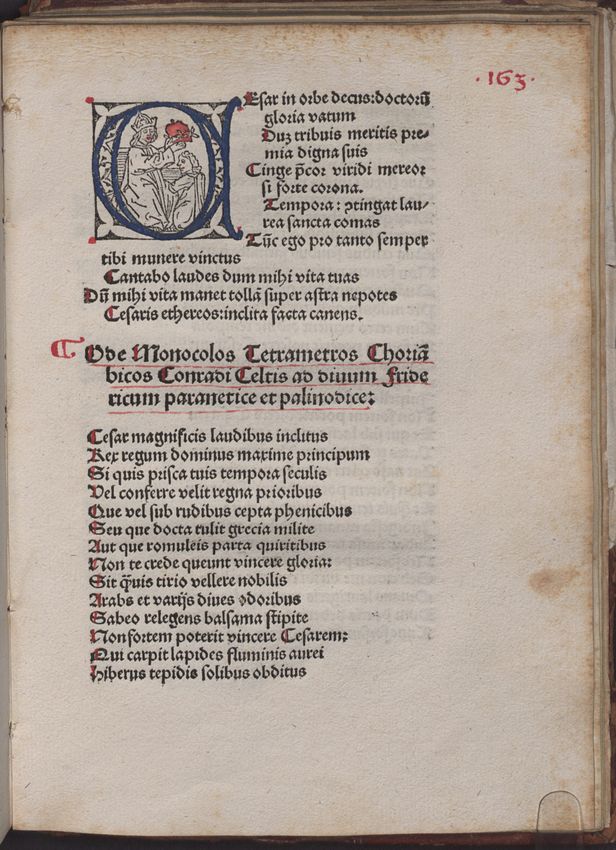 .163.
CEsar in orbe decus:doctorū
gloria vatum
Duʒ tribuis meritis pre-
mia digna suis
Cinge p̄cor viridi mereor
si forte corona.
Tempora: ꝯtingat lau-
rea sancta comas
Tūc ego pro tanto semper
tibi munere vinctus
Cantabo laudes dum mihi vita tuas
Dū mihi vita manet tollā super astra nepotes
Cesaris ethereos:inclita facta canens.
¶ Ode Monocolos Tetrametros Choriā
bicos Conradi Celtis ad diuum Fride
ricum paranetice et palinodice:
Cesar magnificis laudibus inclitus
Rex regum dominus maxime principum
Si quis prisca tuis tempora seculis
Vel conferre velit regna prioribus
Que vel sub rudibus cepta phenicibus
Seu que docta tulit grecia milite
Aut que romuleis parta quiritibus
Non te crede queunt vincere gloria:
Sit q̄uis tirio vellere nobilis
Arabs et varijs diues odoribus
Sabeo relegens balsama stipite
Non fortem poterit vincere Cesarem:
Qui carpit lapides fluminis aurei
Hiberus tepidis solibus obditus